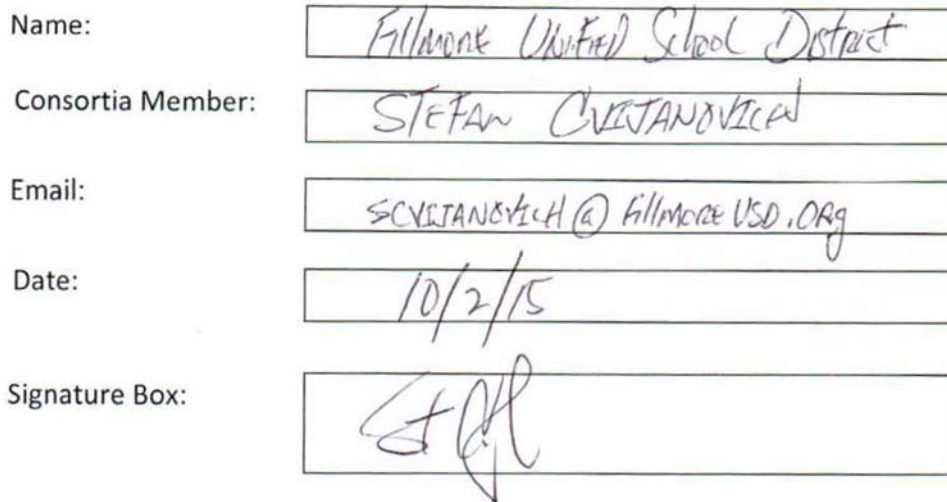 Name: Fillmore Unified School District
Consortia Member: STEFAN CVIJANOVICH
Email: SCVIJANOVICH@FillmoreUSD.ORg
Date: 10/2/15
Signature Box: